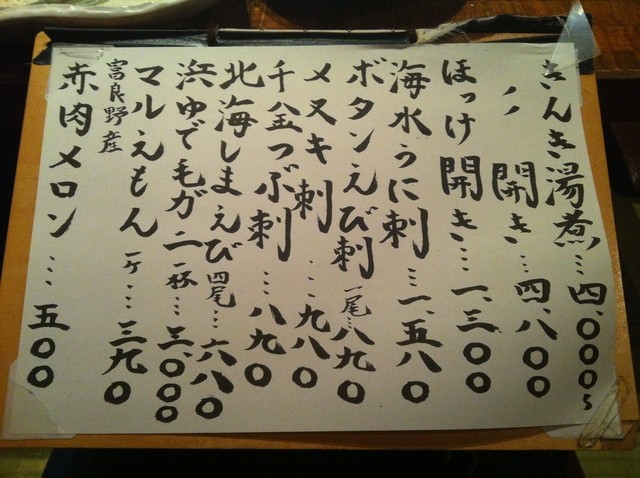 きんき湯煮…四、〇〇〇〜
〃 開き…四、八〇〇
ほっけ開き…一、三〇〇
海水うに刺…一、五八〇
ボタンえび刺一尾…八九〇
メヌキ刺…九八〇
千金つぶ刺…八九〇
北海しまえび四尾…六八〇
浜ゆで毛ガニ一杯…三、〇〇〇
マルえもん一ヶ…三九〇
富良野産
赤肉メロン…五〇〇